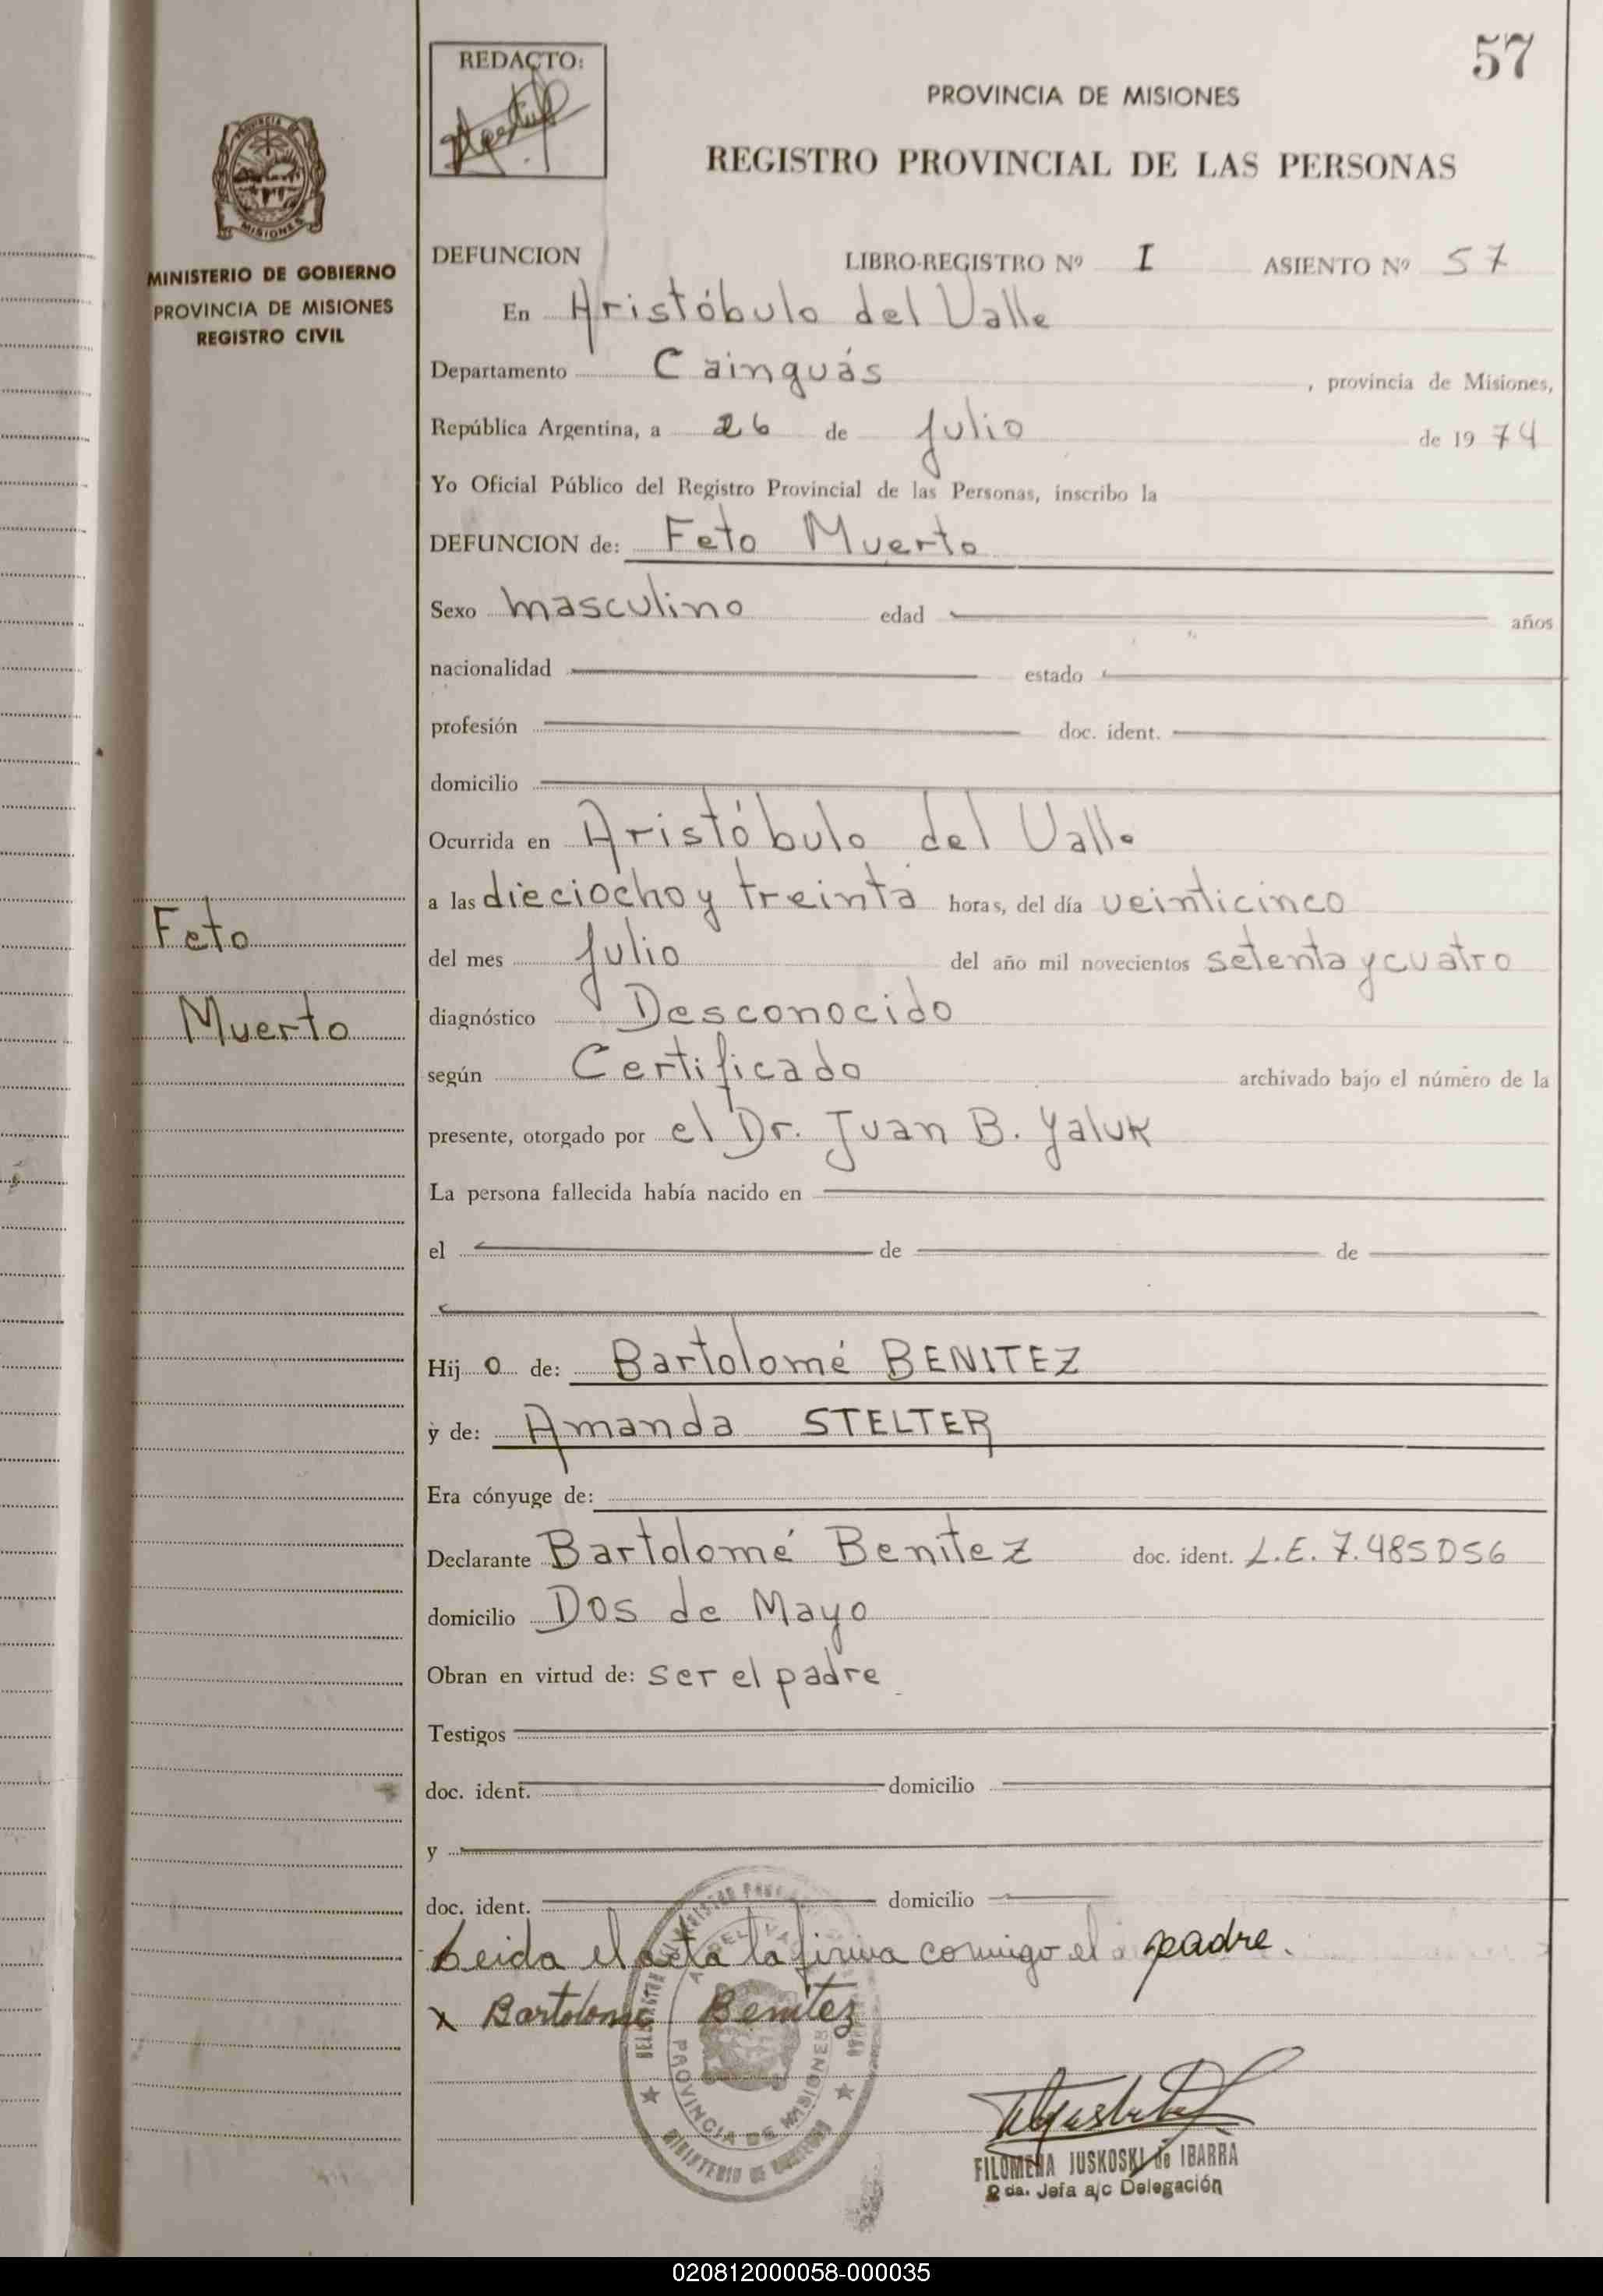 57
REDACTO:
PROVINCIA DE MISIONES
REGISTRO PROVINCIAL DE LAS PERSONAS
MISIONES
MINISTERIO DE GOBIERNO
PROVINCIA DE MISIONES
REGISTRO CIVIL
DEFUNCION LIBRO-REGISTRO Nº I ASIENTO Nº 57
En Aristóbulo del Valle
Departamento Cainguás, provincia de Misiones,
República Argentina, a 26 de julio de 1974
Yo Oficial Público del Registro Provincial de las Personas, inscribo la
DEFUNCION de: Feto Muerto
Sexo masculino edad años
nacionalidad estado
profesión doc. ident.
domicilio
Ocurrida en Aristóbulo del Valle
a las dieciocho y treinta horas, del día veinticinco
Feto
del mes julio del año mil novecientos setenta y cuatro
Muerto
diagnóstico Desconocido
según Certificado archivado bajo el número de la
presente, otorgado por el Dr. Juan B. Yaluk
La persona fallecida había nacido en
el de de
Hijo de: Bartolomé BENITEZ
y de: Amanda STELTER
Era cónyuge de:
Declarante Bartolomé Benitez doc. ident. L.E. 7.485056
domicilio Dos de Mayo
Obran en virtud de: ser el padre
Testigos
doc. ident. domicilio
y
doc. ident. domicilio
Leida el acta la firma conmigo el padre.
x Bartolomé Benitez
PROVINCIA DE MISIONES
MINISTERIO DE GOBIERNO
FILOMENA JUSKOSKI de IBARRA
2da. Jefa a/c Delegación
020812000058-000035